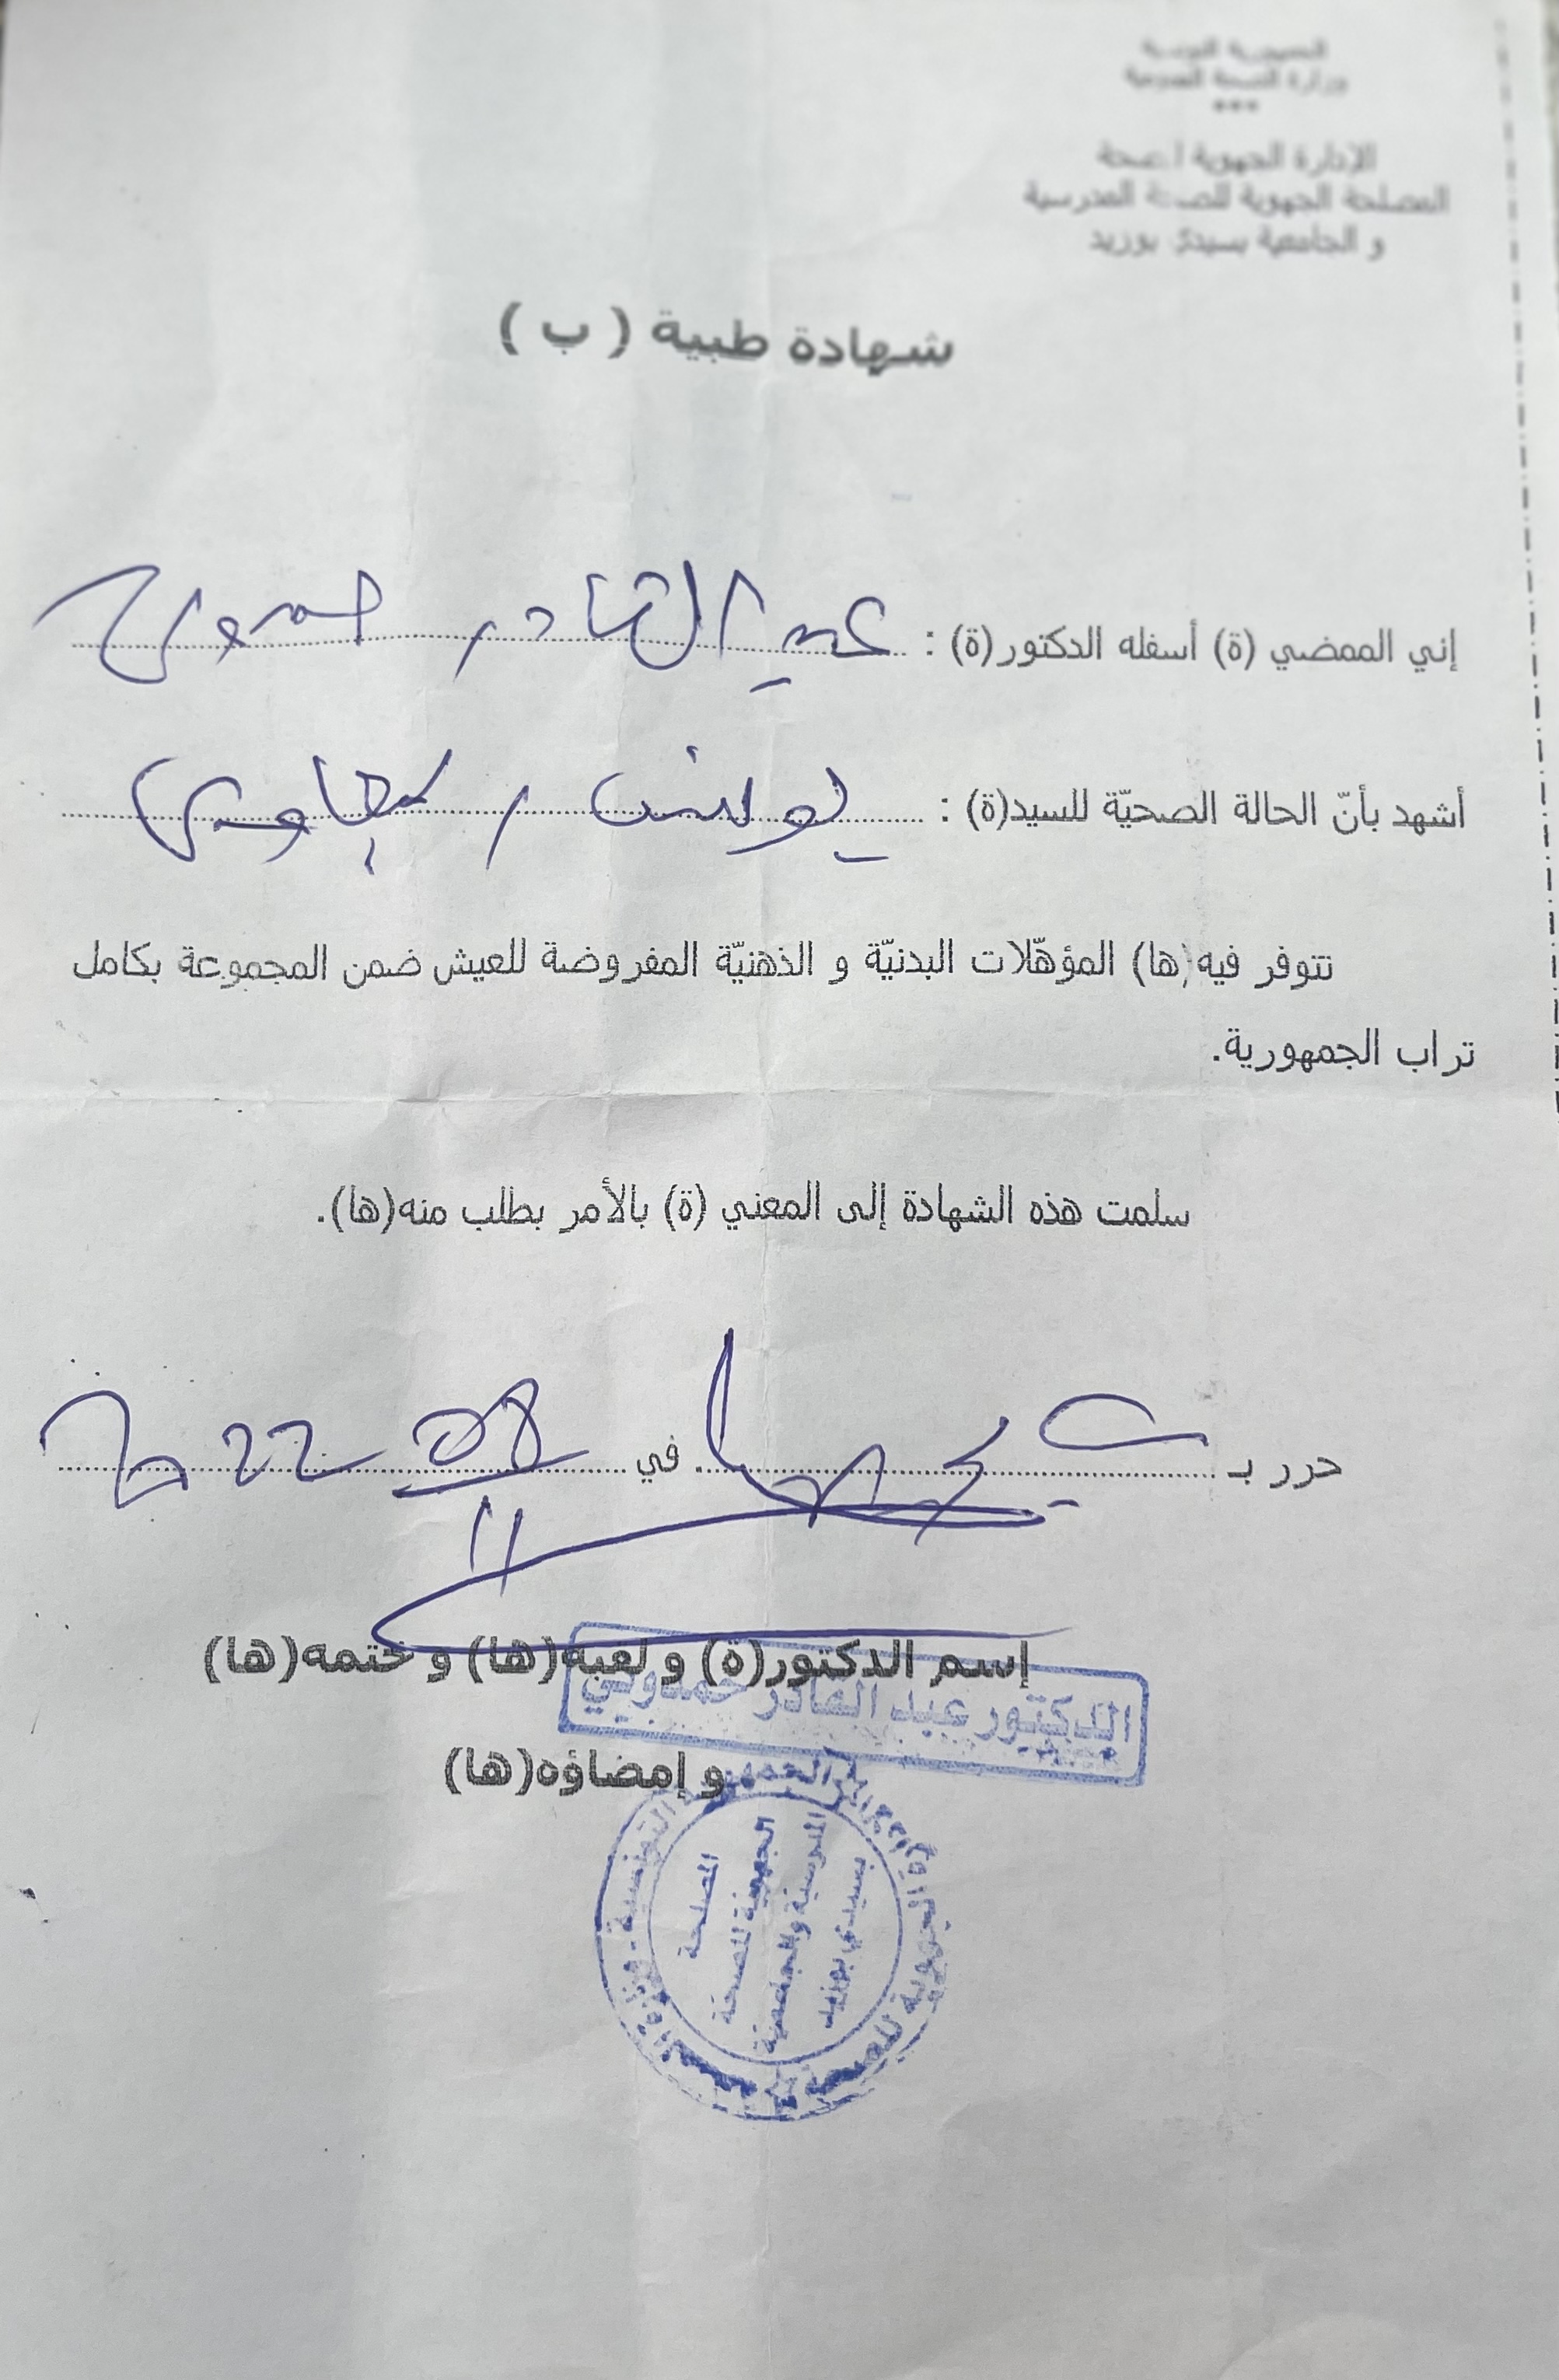 الجمهورية التونسية
وزارة الصحة العمومية
***
الإدارة الجهوية للصحة
المصلحة الجهوية للصحة المدرسية
و الجامعية بسيدي بوزيد
شهادة طبية ( ب )
إني الممضي (ة) أسفله الدكتور(ة) : عبد القادر حمدوني
أشهد بأنّ الحالة الصحيّة للسيد(ة) : يونس
تتوفر فيه(ها) المؤهّلات البدنيّة و الذهنيّة المفروضة للعيش ضمن المجموعة بكامل
تراب الجمهورية.
سلمت هذه الشهادة إلى المعني (ة) بالأمر بطلب منه(ها).
حرر بـ في 08 2022
إسم الدكتور(ة) و لقبه(ها) و ختمه(ها)
الدكتور عبد القادر حمدوني
و إمضاؤه(ها)
المصلحة
الجهوية للصحة
المدرسية والجامعية
بسيدي بوزيد